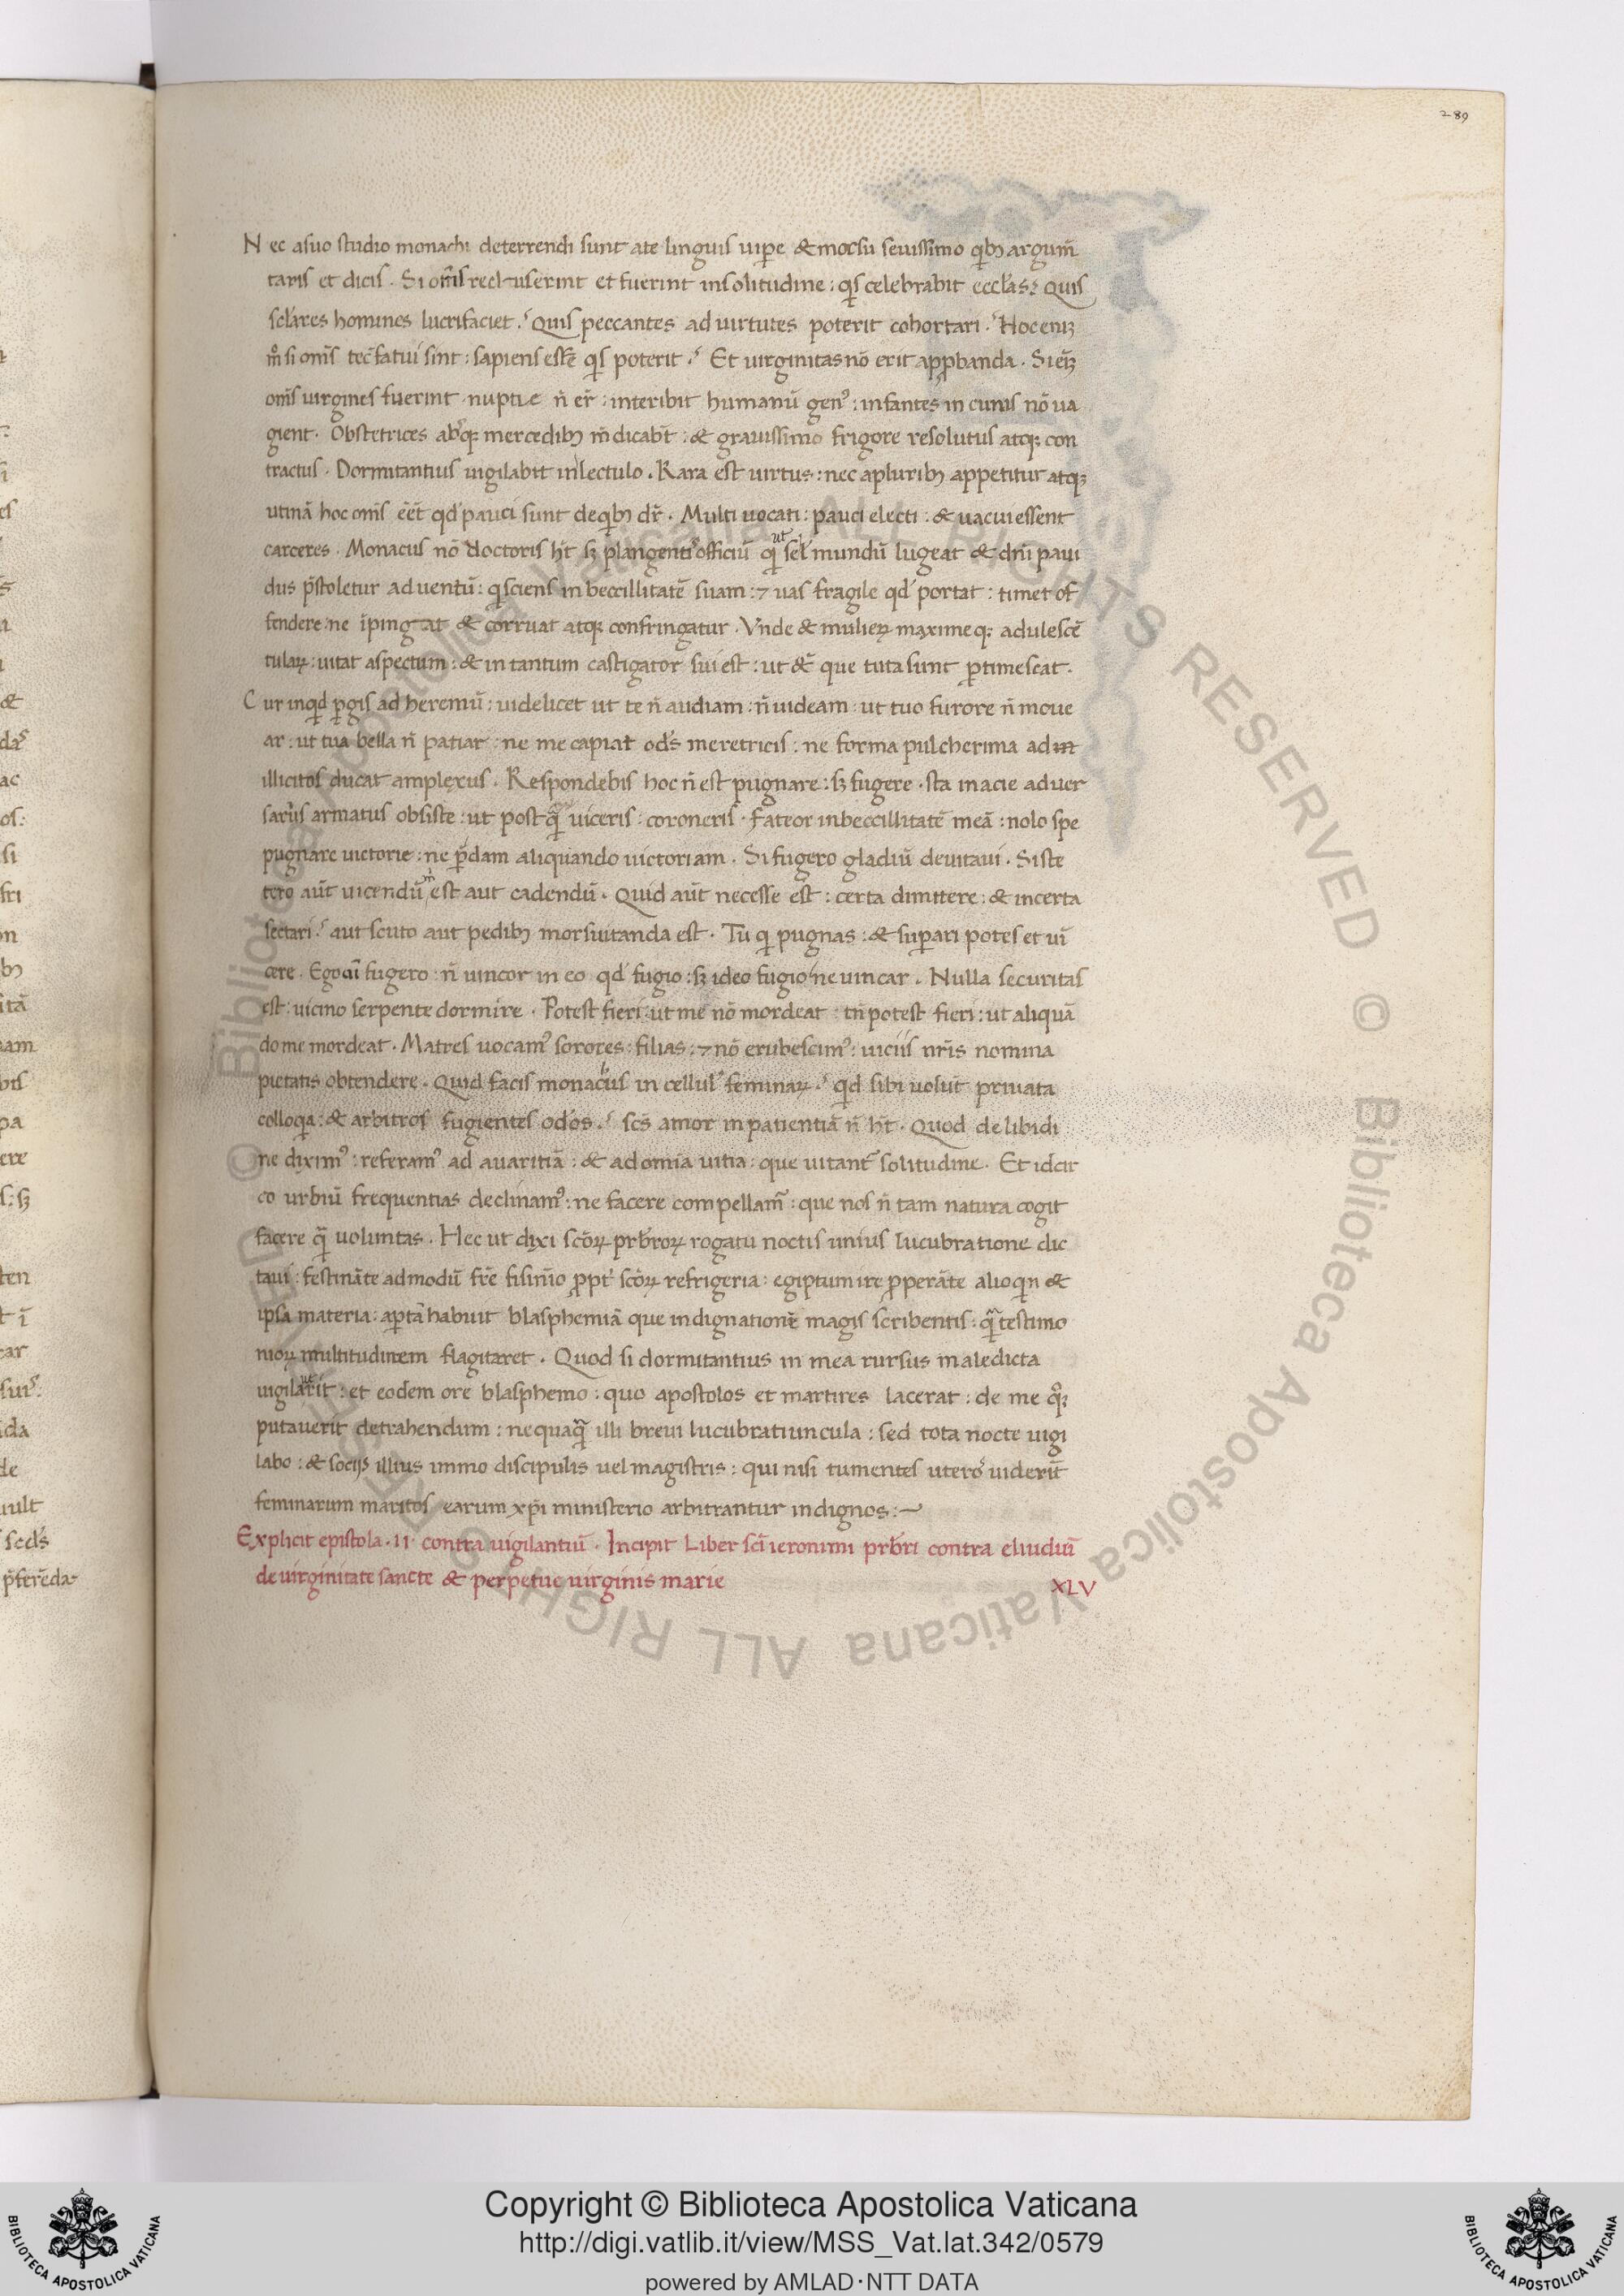 289
Nec asuo studio monachi deterrendi sunt ate linguis uiꝑe & morsu seuissimo qͥbꝫ argum̄
taris et dicis . Si om̄is recluserint et fuerint insolitudine : qͥs celebrabit eccl̓as? Quis
scl̓ares homines lucrifaciet ? Quis peccantes ad uirtutes poterit cohortari ? Hoc eniꝫ
m̊ si om̄s tec̄ fatui sint : sapiens eē qͥs poterit ? Et uirginitas nō erit apꝓbanda . Si
om̄s uirgines fuerint nuptie n̄ er̄t : interibit humanū genꝰ : infantes in cunis nō ua
gient . Obstetrices absqꝫ mercedibꝫ m̄dicab̄t : & grauissimo frigore resolutus atqꝫ con
tractus . Dormitantius uigilabit in lectulo . Rara est uirtus : nec apluribꝫ appetitur atqꝫ
utinā hoc om̄s eēt qd̓ pauci sunt deqͥbꝫ dr̄ . Multi uocati : pauci electi : & uacui essent
carceres . Monacus nō doctoris h̄t sꝫ plangentis officiū qͥ ut sel̓ mundū lugeat & dn̄i paui
dus p̄stoletur aduentū : qͥ sciens inbeccillitatē suam : ⁊ uas fragile qd̓ portat : timet of
fendere ne īpingat & corruat atqꝫ confringatur . Vnde & mulieꝝ maximeqꝫ adulescē
tulaꝝ : uitat aspectum : & in tantum castigator sui est : ut & que tuta sunt ꝑtimescat .
Cur inqͥd ꝑgis ad heremū : uidelicet ut te n̄ audiam : n̄ uideam : ut tuo furore n̄ moue
ar : ut tua bella n̄ patiar : ne me capiat od̓s meretricis : ne forma pulcherima ad
illicitos ducat amplexus . Respondebis hoc n̄ est pugnare : sꝫ fugere . sta inacie aduer
sariis armatus obsiste : ut postqͣ̄ uiceris : coroneris . Fateor inbeccillitatē meā : nolo spe
pugnare uictorie : ne ꝑdam aliquando uictoriam . Si fugero gladiū deuitaui . Si ste
tero aūt uicendū m̓ est aut cadendū . Quid aūt necesse est : certa dimittere : & incerta
sectari ? aut scuto aut pedibꝫ mors uitanda est . Tu qͥ pugnas : & suꝑari potes et uī
cere . Ego cū fugero : n̄ uincor in eo qd̓ fugio : sꝫ ideo fugio ne uincar . Nulla securitas
est : uicino serpente dormire . Potest fieri ut me nō mordeat : tn̄ potest fieri : ut aliquā
do me mordeat . Matres uocamꝰ sorores : filias : ⁊ nō erubescimꝰ : uiciis nr̄is nomina
pietatis obtendere . Quid facis monachus in cellul̓ feminaꝝ ? qͥd sibi uolūt priuata
colloqͥa : & arbitros fugientes od̓os ? sc̄s amor inpatientiā n̄ h̄t . Quod de libidi
ne diximꝰ : referamꝰ ad auaritiā : & ad omīa uitia : que uitant̄ solitudine . Et idcir
co urbiū frequentias declinamꝰ : ne facere compellam̄ : que nos n̄ tam natura cogit
facere qͣ̄ uoluntas . Hec ut dixi sc̄oꝝ prb̄roꝝ rogatu noctis unius lucubratione dic
taui : festināte admodū fr̄e sisin̄io ꝓpt̓ sc̄oꝝ refrigeria : egiptum ire ꝓperāte alioqͥn &
ipsa materia : aꝑtā habuit blasphemiā que indignationē magis scribentis : qͣ̄ testimo
nioꝝ multitudinem flagitaret . Quod si dormitantius in mea rursus maledicta
uigilauerit : et eodem ore blasphemo : quo apostolos et martires lacerat : de me qͦqꝫ
putauerit detrahendum : nequaqͣ̄ illi breui lucubratiuncula : sed tota nocte uigi
labo : & sociis illius immo discipulis uel magistris : qui nisi tumentes utero uiderīt
feminarum maritos earum xp̄i ministerio arbitrantur indignos :~
Explicit epistola . II . contra uigilantiū . Incipit Liber sc̄i ieronimi prb̄ri contra eluidiū
de uirginitate sancte & perpetue uirginis marie XLV
Copyright © Biblioteca Apostolica Vaticana
http://digi.vatlib.it/view/MSS_Vat.lat.342/0579
powered by AMLAD·NTT DATA